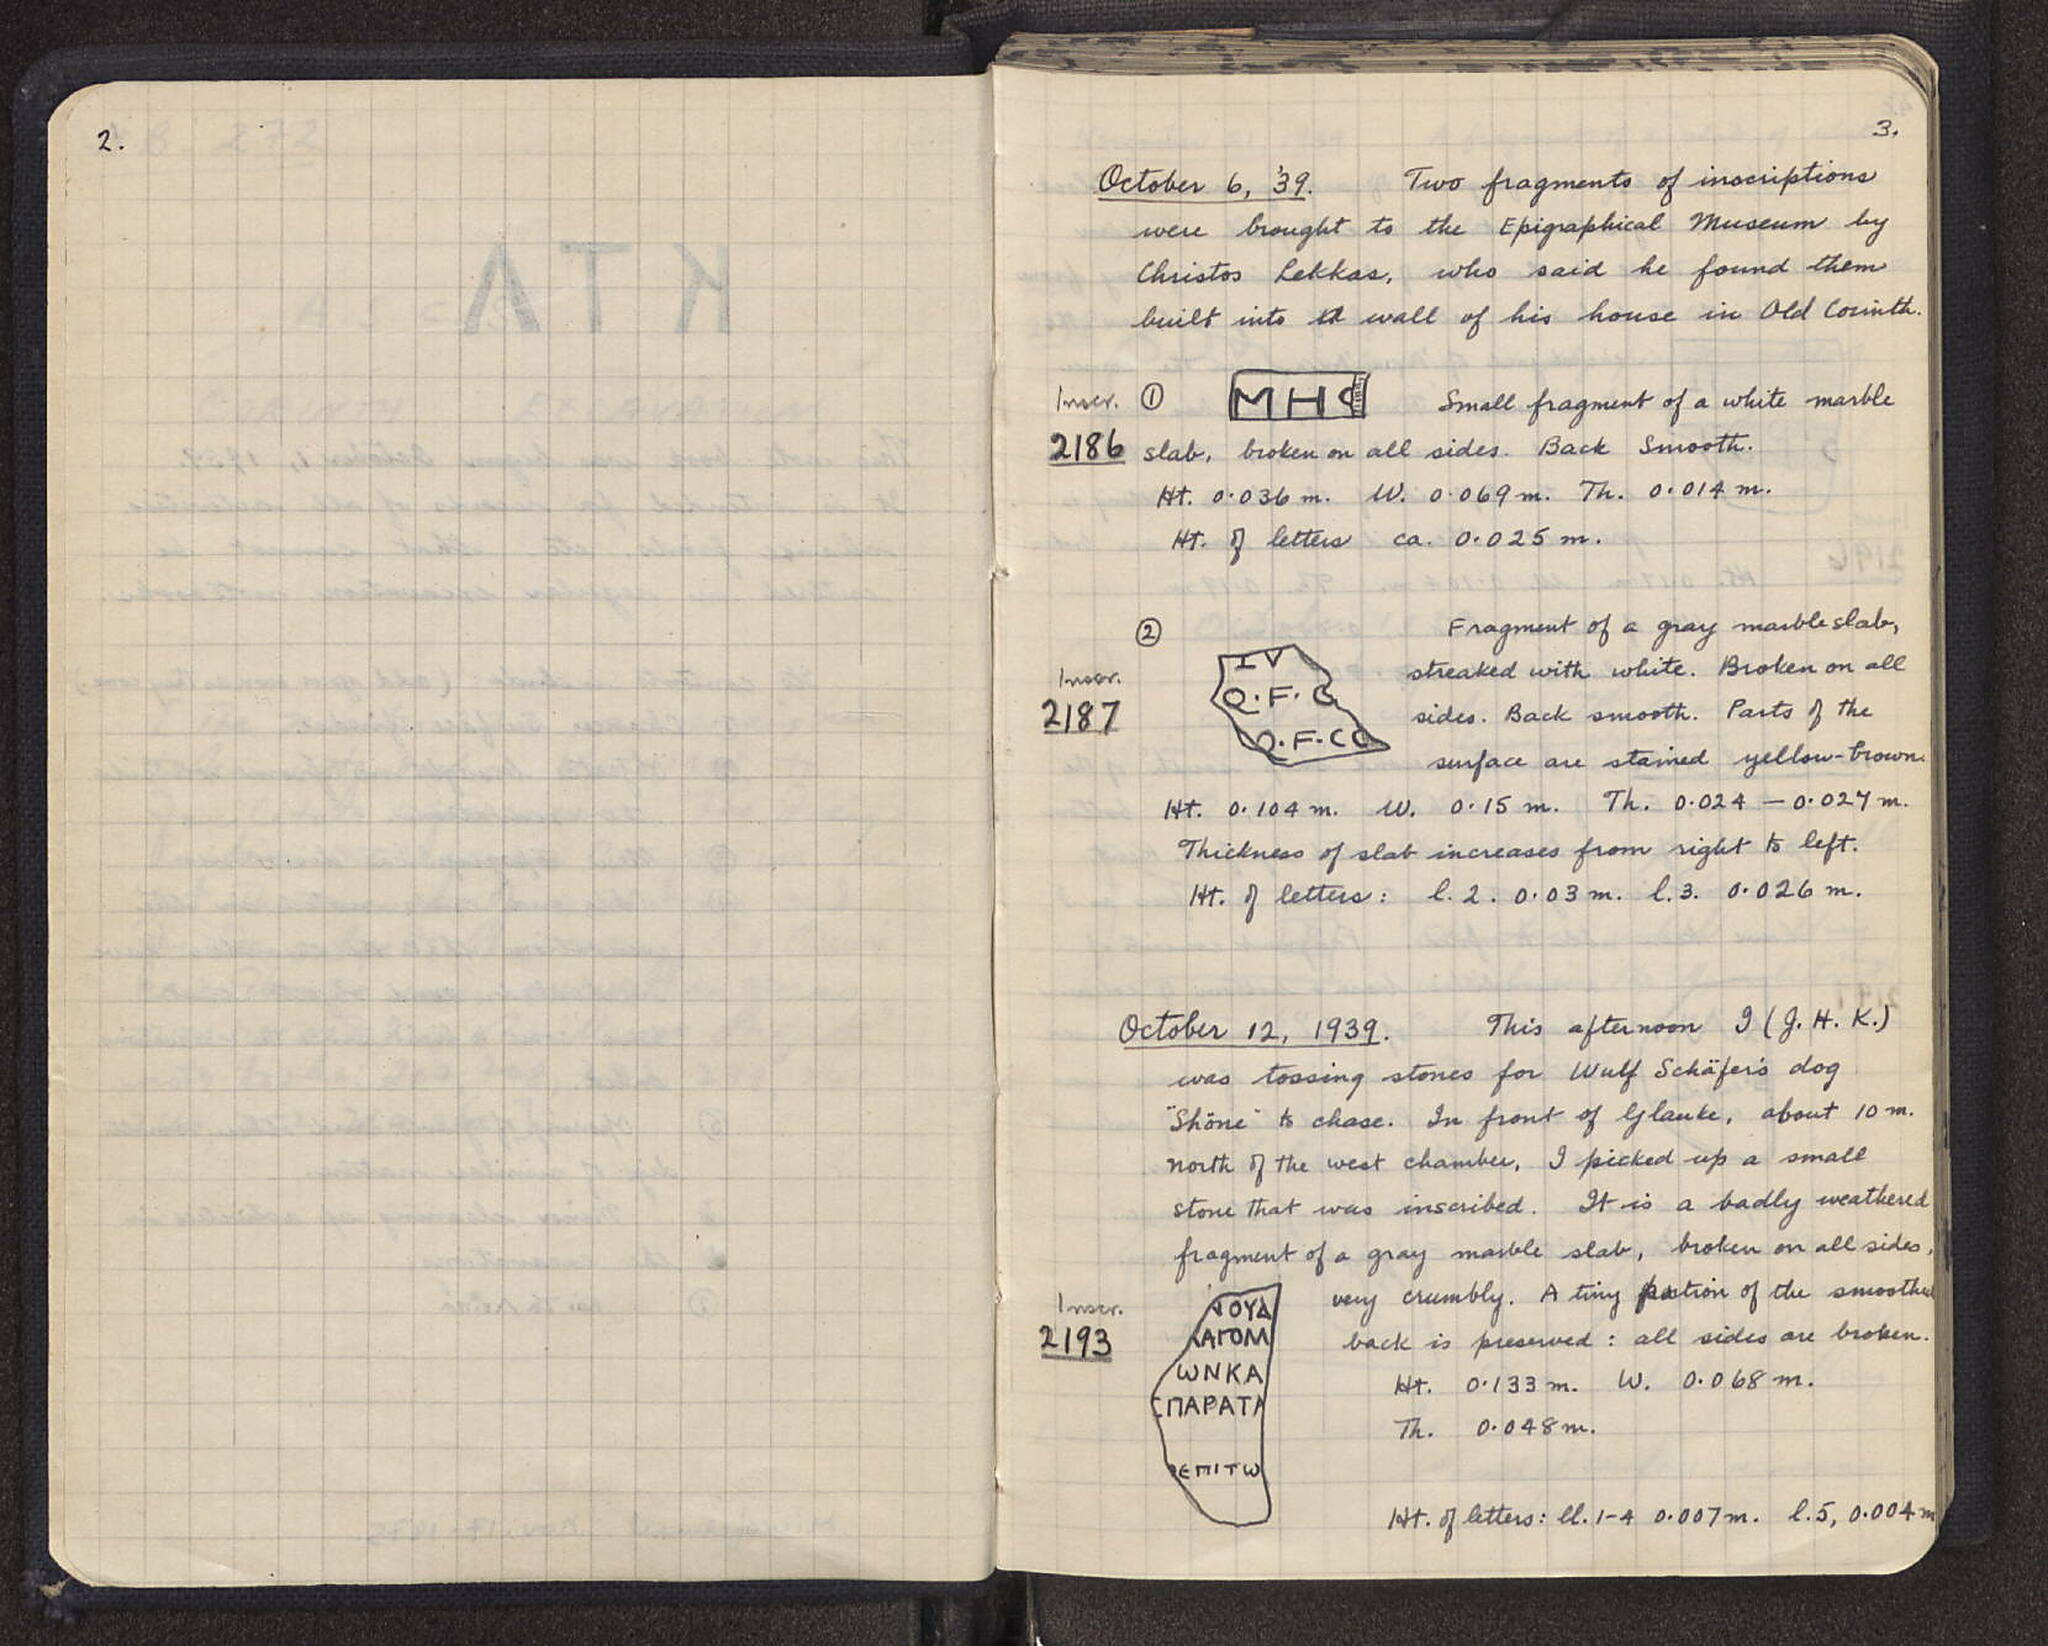 2.
3.
October 6, '39. Two fragments of inscriptions
were brought to the Epigraphical Museum by
Christos Lekkas, who said he found them
built into wall of his house in Old Corinth.
Inscr. ① MHC Small fragment of a white marble
2186 slab, broken on all sides. Back Smooth.
Ht. 0.036 m. W. 0.069 m. Th. 0.014 m.
Ht. of letters ca. 0.025 m.
② Fragment of a gray marble slab,
Inscr. IV streaked with white. Broken on all
2187 Q·F·C sides. Back smooth. Parts of the
Q·F·CO surface are stained yellow-brown.
Ht. 0.104 m. W. 0.15 m. Th. 0.024 – 0.027 m.
Thickness of slab increases from right to left.
Ht. of letters: l. 2. 0.03 m. l. 3. 0.026 m.
October 12, 1939. This afternoon I (J. H. K.)
was tossing stones for Wulf Schäfer's dog
"Shöne" to chase. In front of Glauke, about 10 m.
north of the west chamber, I picked up a small
stone that was inscribed. It is a badly weathered
fragment of a gray marble slab, broken on all sides,
Inscr. ΝΟΥΔ very crumbly. A tiny portion of the smoothed
2193 ΛΑΓΟΛΛ back is preserved: all sides are broken.
ΩΝΚΑ Ht. 0.133 m. W. 0.068 m.
ΣΠΑΡΑΤΑ Th. 0.048 m.
ΕΠΙΤΩ
Ht. of letters: ll. 1-4 0.007 m. l. 5, 0.004 m